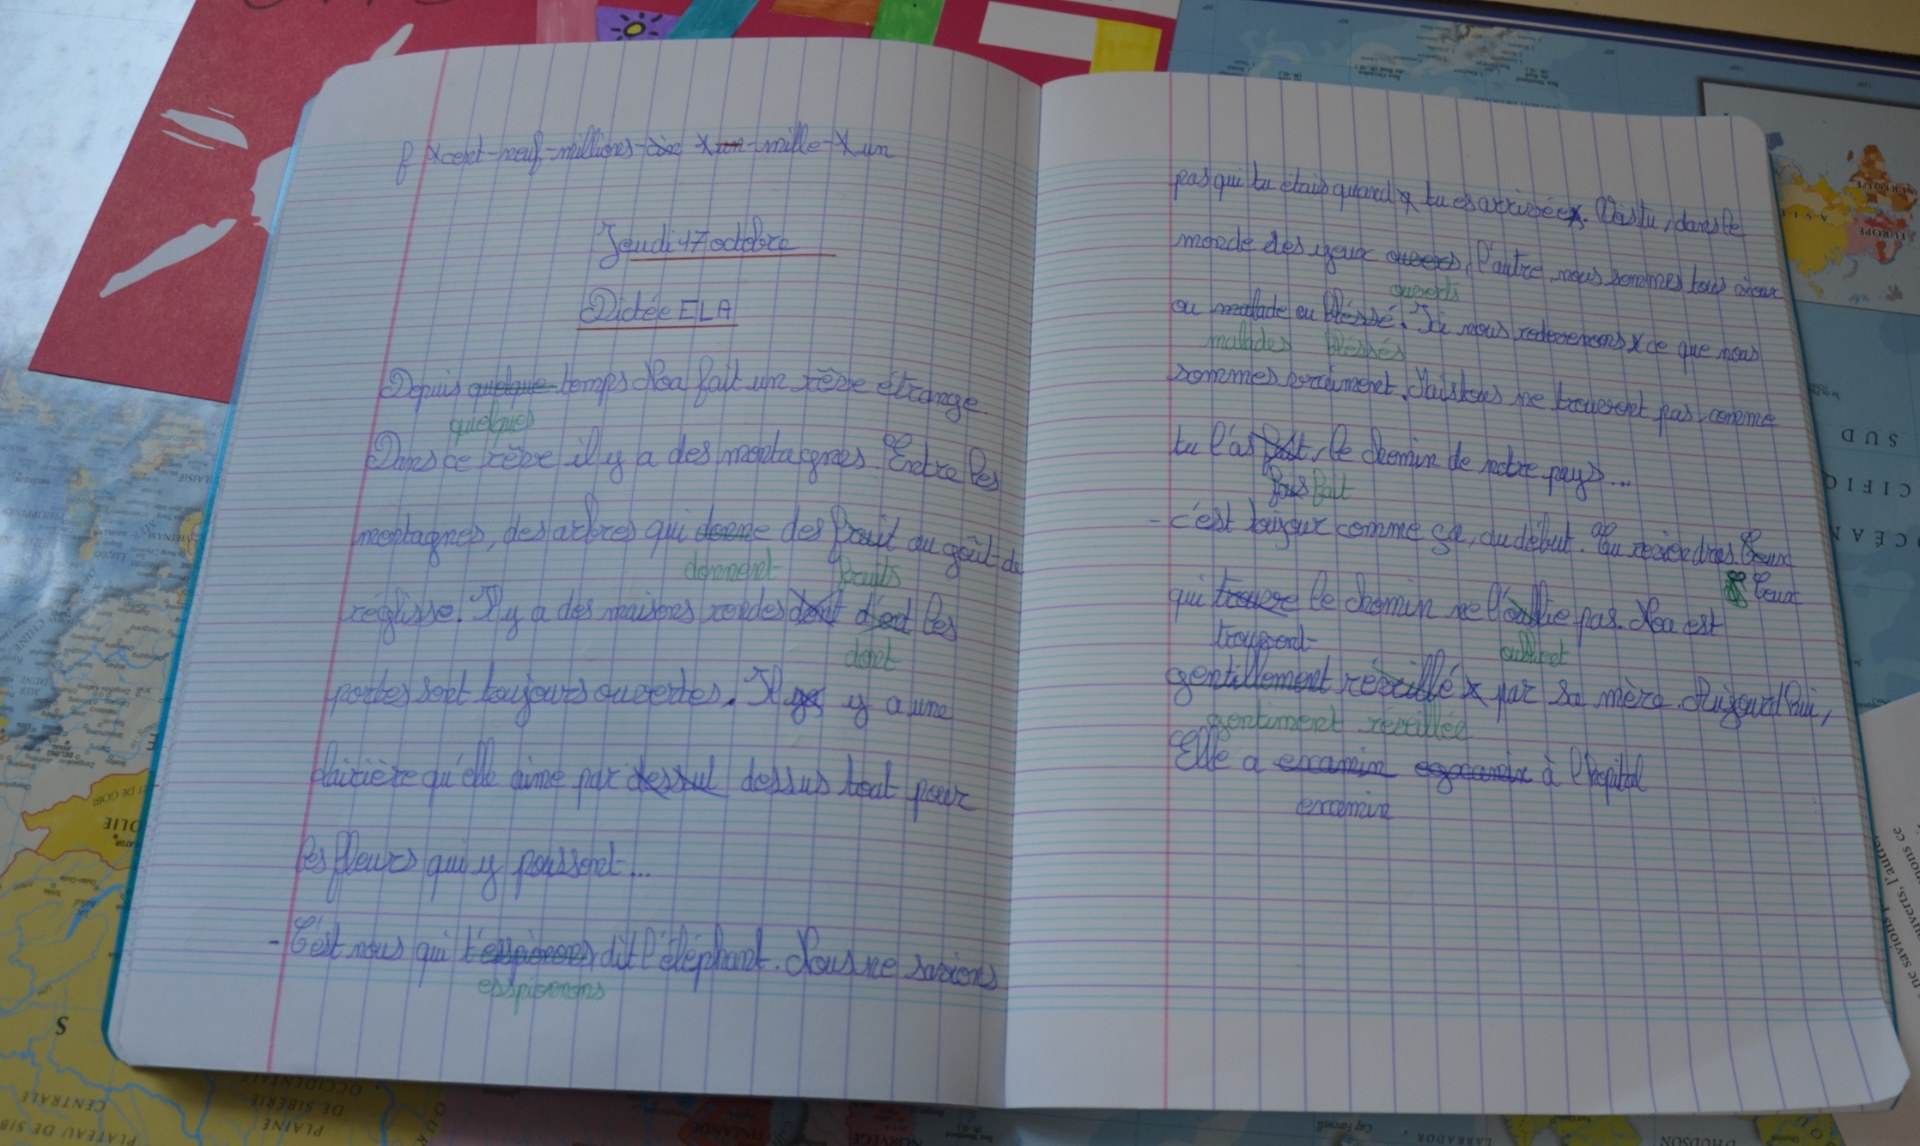 f cent-neuf-millions un-mille un
Jeudi 17 octobre
Dictée ELA
Depuis quelque temps Noa fait un rêve étrange.
quelques
Dans ce rêve il y a des montagnes. Entre les
montagnes, des arbres qui donne des fruit au goût de
donnent fruits
réglisse. Il y a des maisons rondes dont d'ont les
dont
portes sont toujours ouvertes. Il y a une
clairière qu'elle aime par dessus tout pour
les fleurs qui y poussent...
- C'est nous qui t'espionons dit l'éléphant. Nous ne savions
esspionnons
pas qui tu étais quand tu es arrivée. Vois tu, dans le
monde des yeux ouvers, l'autre, nous sommes tous vieux
ouverts
ou malade ou bléssé. Ici nous redevenons ce que nous
malades bléssés
sommes vraiment. Mais tous ne trouvent pas, comme
tu l'as fait, le chemin de notre pays...
fait
- c'est toujour comme ça, au début. Tu reviendras. Ceux
Ceux
qui trouve le chemin ne l'oublie pas. Noa est
trouvent oublient
gentillement réveillé par sa mère. Aujourd'hui,
gentiment réveillée
Elle a examin à l'hopital
examin
SUD
OCÉAN
CENTRALE
PLATEAU DE SIB
OCCIDENTALE
DE SIBÉRIE
PLAINE
S